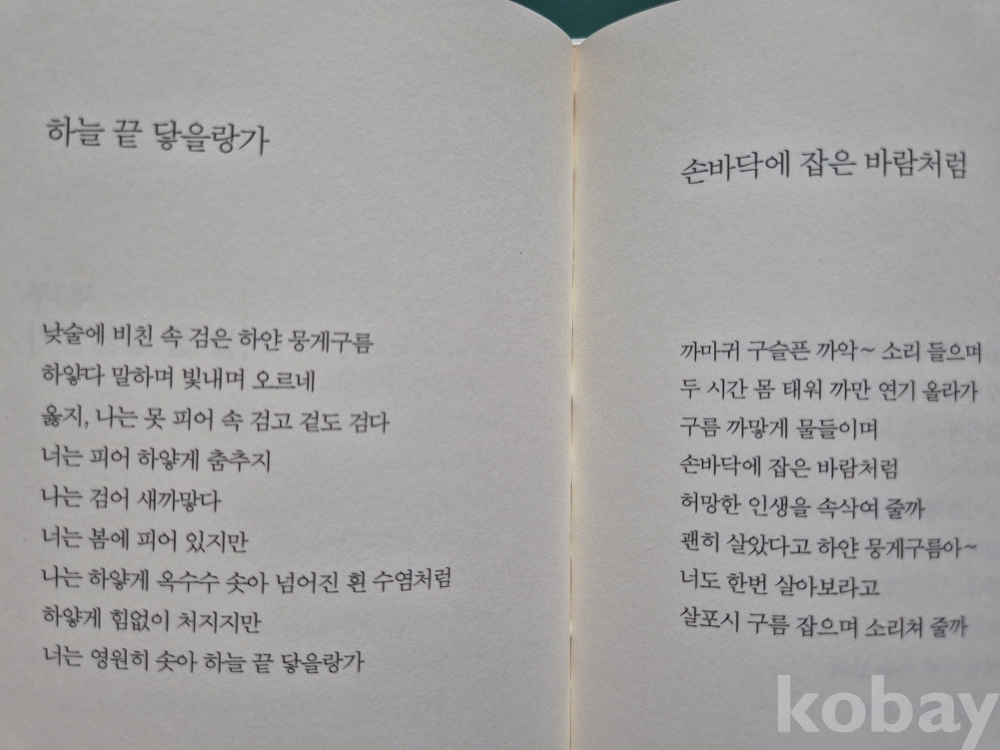 하늘 끝 닿을랑가
낮술에 비친 속 검은 하얀 뭉게구름
하얗다 말하며 빛내며 오르네
옳지, 나는 못 피어 속 검고 겉도 검다
너는 피어 하얗게 춤추지
나는 검어 새까맣다
너는 봄에 피어 있지만
나는 하얗게 옥수수 솟아 넘어진 흰 수염처럼
하얗게 힘없이 처지지만
너는 영원히 솟아 하늘 끝 닿을랑가
손바닥에 잡은 바람처럼
까마귀 구슬픈 까악~ 소리 들으며
두 시간 몸 태워 까만 연기 올라가
구름 까맣게 물들이며
손바닥에 잡은 바람처럼
허망한 인생을 속삭여 줄까
괜히 살았다고 하얀 뭉게구름아~
너도 한번 살아보라고
살포시 구름 잡으며 소리쳐 줄까
kobay